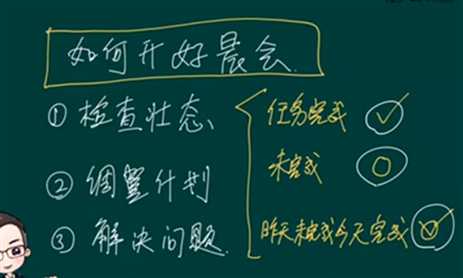 如何开好晨会
① 检查状态、
② 调整计划
③ 解决问题
任务完成 ✓
未完成 ○
昨天未完成今天完成